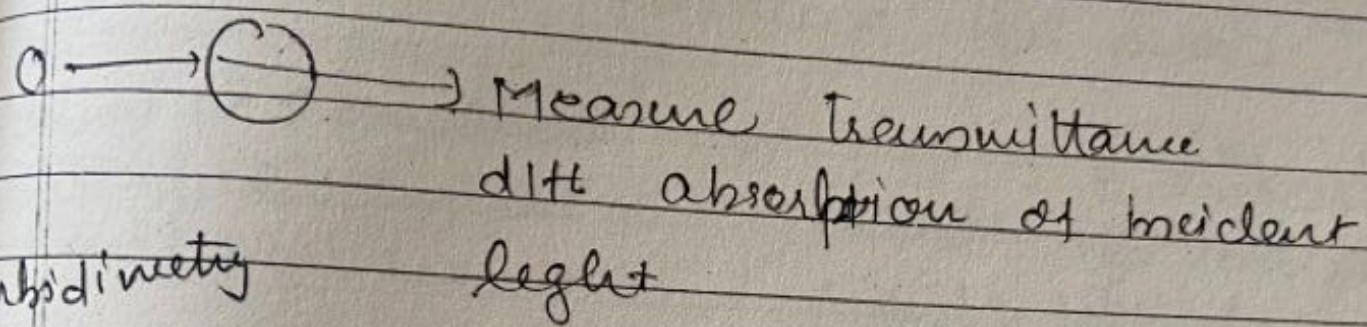 Measure Transmittance
diff absorption of incident
light